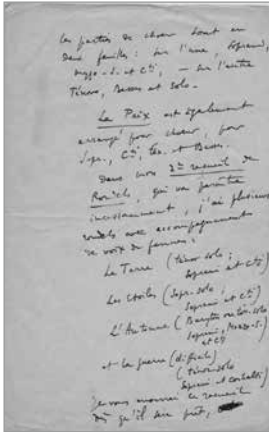 Les parties de chœur sont en
deux feuilles : sur l'une, Soprani,
Mezzo-S. et Cti, — sur l'autre
Ténors, Basses et Solo.
La Paix est également
arrangé pour chœur, pour
Sopr., Cti, Tén. et Basses.
Dans mon 3e recueil de
Rondels, qui va paraître
incessamment, j'ai plusieurs
rondels avec accompagnements
de voix de femmes :
La Terre (Ténor solo ;
Soprani et Cti)
Les Etoiles (Sopr. solo ;
Soprani et Cti)
L'Automne (Baryton ou tén. solo
Soprani, Mezzo-S.
et Cti
et la guerre (difficile)
(Ténor solo
Soprani et contralti)
Je vous enverrai le recueil
dès qu'il sera prêt,